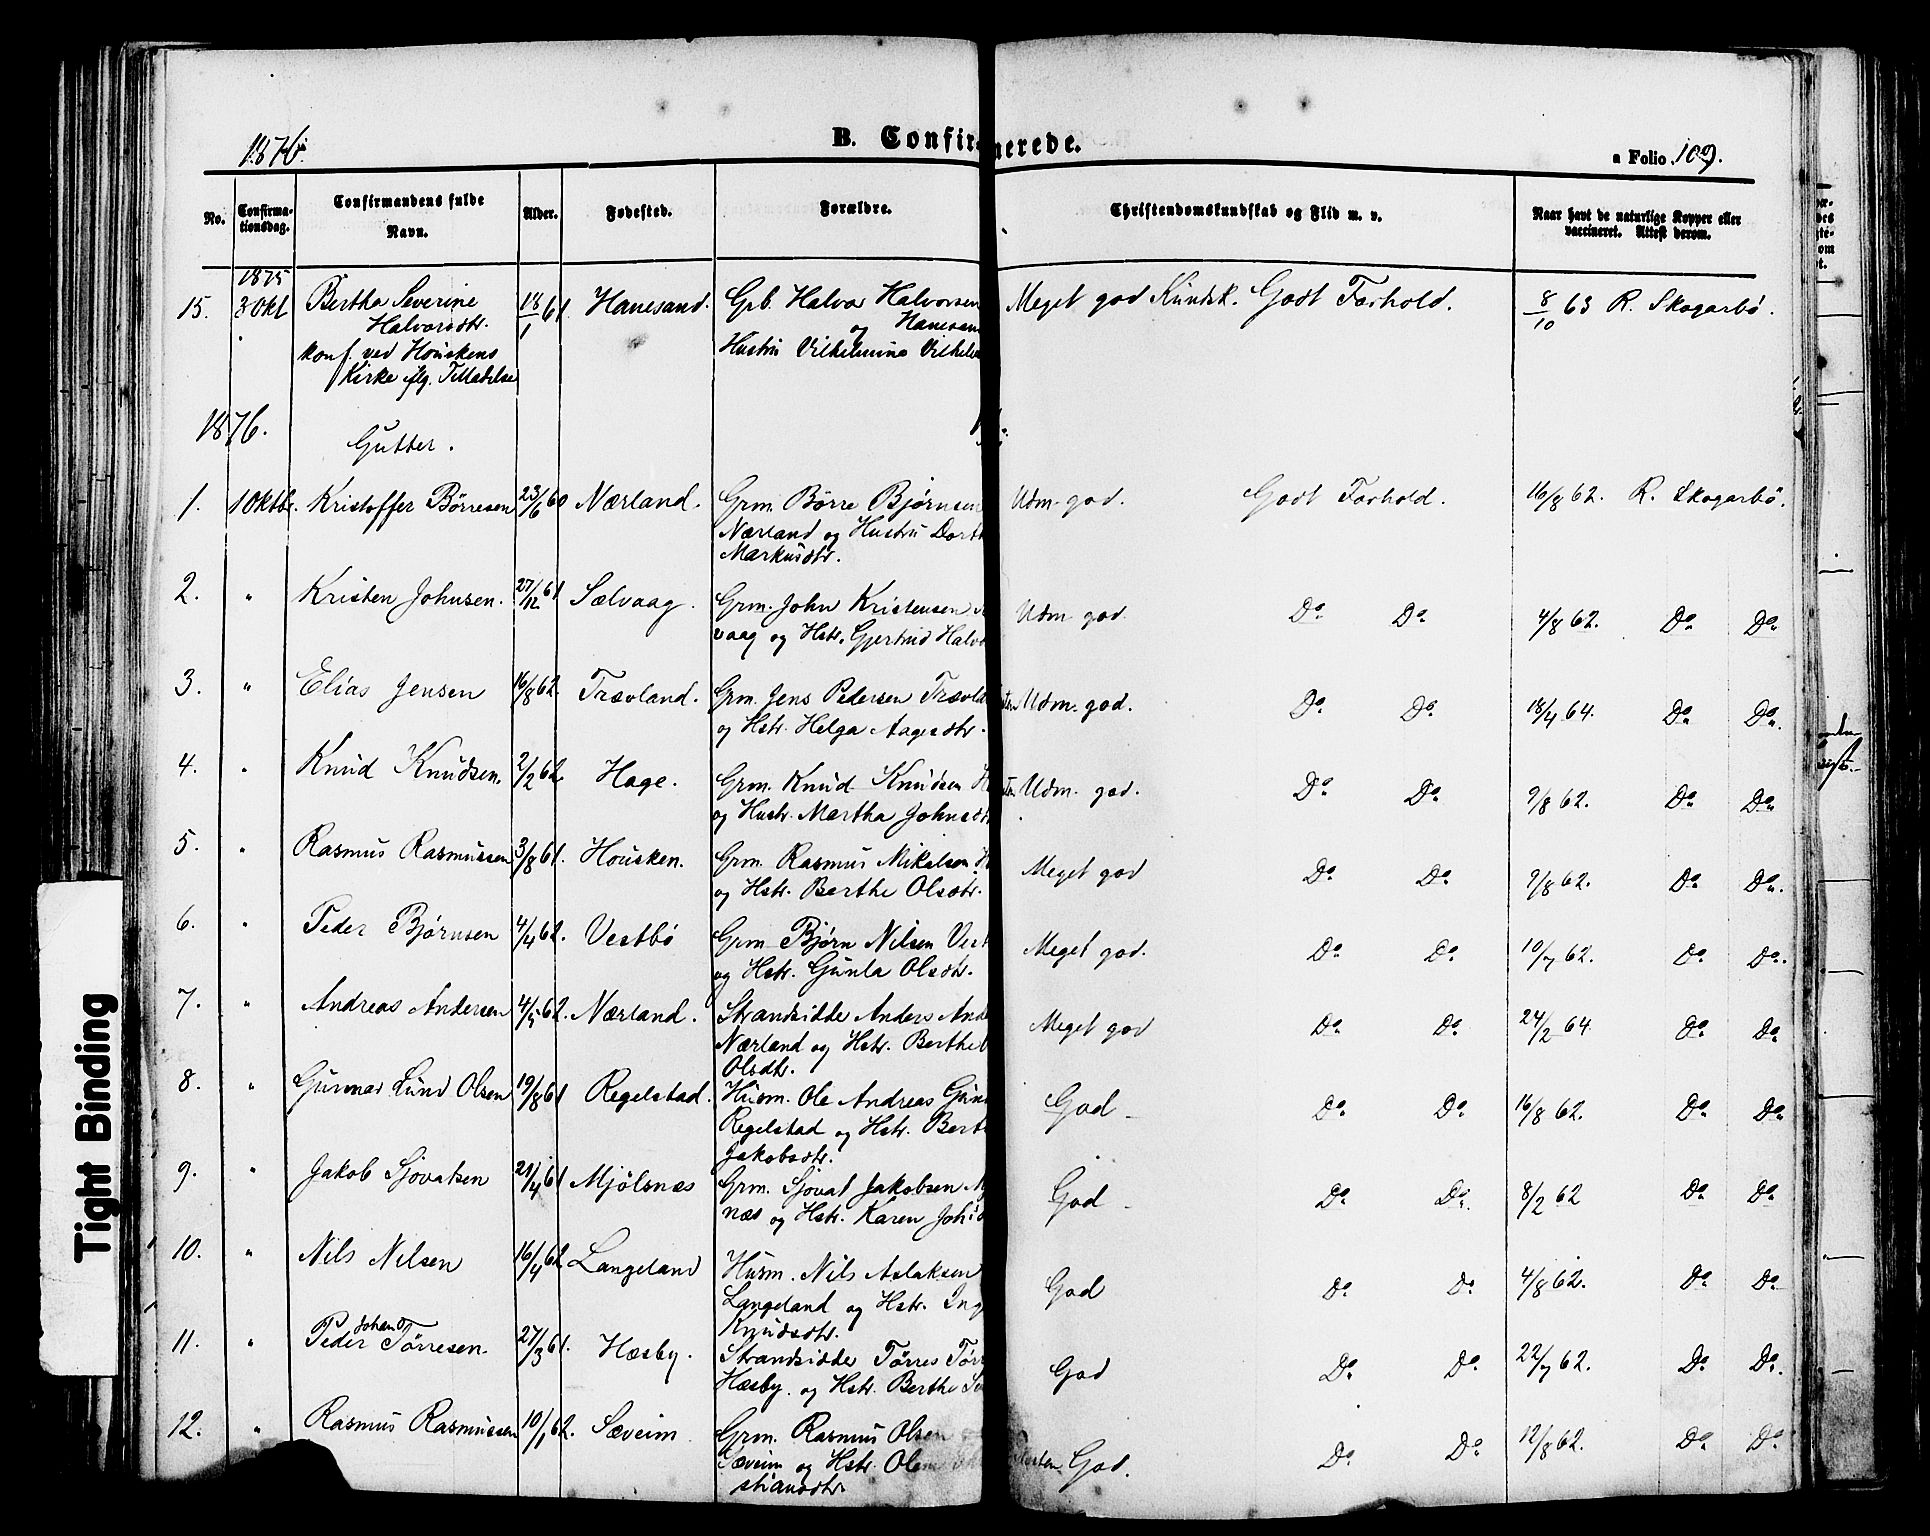 1876.
B. Confirmerede.
a Folio 109.
No.
Confirma-
tionsdag.
Confirmandens fulde
Navn.
Alder.
Fødested.
Forældre.
Christendomskundskab og Flid m. v.
Naar havt de naturlige Kopper eller
vaccineret. Attest derom.
1875
15. 3 Okt Bertha Severine 18/1 61. Hanesand. Grb. Halvor Halvorsen Meget god Kundsk. Godt Forhold. 8/10 63 R. Skogarbø.
Halvorsdtr. og Hanesan
konf. ved Houskens Hustru Vilhelmine Vilhelm
Kirke iflg. Tilladelse
1876.
Gutter.
1. 1 Oktbr. Kristoffer Børresen 23/6 60 Nærland. Grm. Børre Bjørnsen Udm. god. Godt Forhold. 16/8 62. R. Skogarbø.
Nærland og Hustru Dort
Markusdtr.
2. " Kristen Johnsen. 27/12 61 Sælvaag. Grm. John Kristensen Udm. god. Do. Do. 4/8 62. Do. Do.
vaag og Hstr. Gjertrud Halv
3. " Elias Jensen 16/8 62. Trævland. Grm. Jens Pedersen Trævla Udm. god. Do. Do. 18/4 64. Do. Do.
og Hstr. Helga Aagesdtr.
4. " Knud Knudsen. 2/2 62. Hage. Grm. Knud Knudsen H Udm. god. Do. Do. 9/8 62. Do. Do.
og Hustr. Martha Johnsdt
5. " Rasmus Rasmussen 3/8 61. Housken. Grm. Rasmus Mikalsen H Meget god Do. Do. 9/8 62. Do. Do.
og Hstr. Berthe Olsdtr.
6. " Peder Bjørnsen 4/4 62. Vestbø Grm. Bjørn Nilsen Vest Meget god. Do. Do. 10/7 62. Do. Do.
og Hstr. Gunla Olsdtr.
7. " Andreas Andersen 4/5 62. Nærland. Strandsidder Anders And Meget god Do. Do. 24/2 64 Do. Do.
Nærland og Hstr. Berthe
Olsdtr.
8. " Gunnar Lund Olsen 19/8 61 Regelstad. Husm. Ole Andreas Gun God Do. Do. 16/8 62. Do. Do.
Regelstad og Hstr. Bert
Jakobsdtr.
9. " Jakob Sjovatsen 21/4 61 Mjølsnæs Grm. Sjovat Jakobsen Mj God Do. Do. 8/2 62 Do. Do.
næs og Hstr. Karen Joh
10. " Nils Nilsen 16/4 62 Langeland Husm. Nils Aslaksen God Do. Do. 4/8 62. Do. Do.
Langeland og Hstr. Ing
Knudsdtr.
11. " Peder Johan Tørresen. 27/3 61. Hæsby. Strandsidder Tørres Tør God Do. Do. 22/7 62. Do. Do.
Hæsby. og Hstr. Berthe
12. " Rasmus Rasmussen 10/1 62. Sæveim Grm. Rasmus Olsen God. Do. Do. 12/8 62. Do. Do.
Sæveim og Hstr. Olene
stiansdtr.
Tight Binding